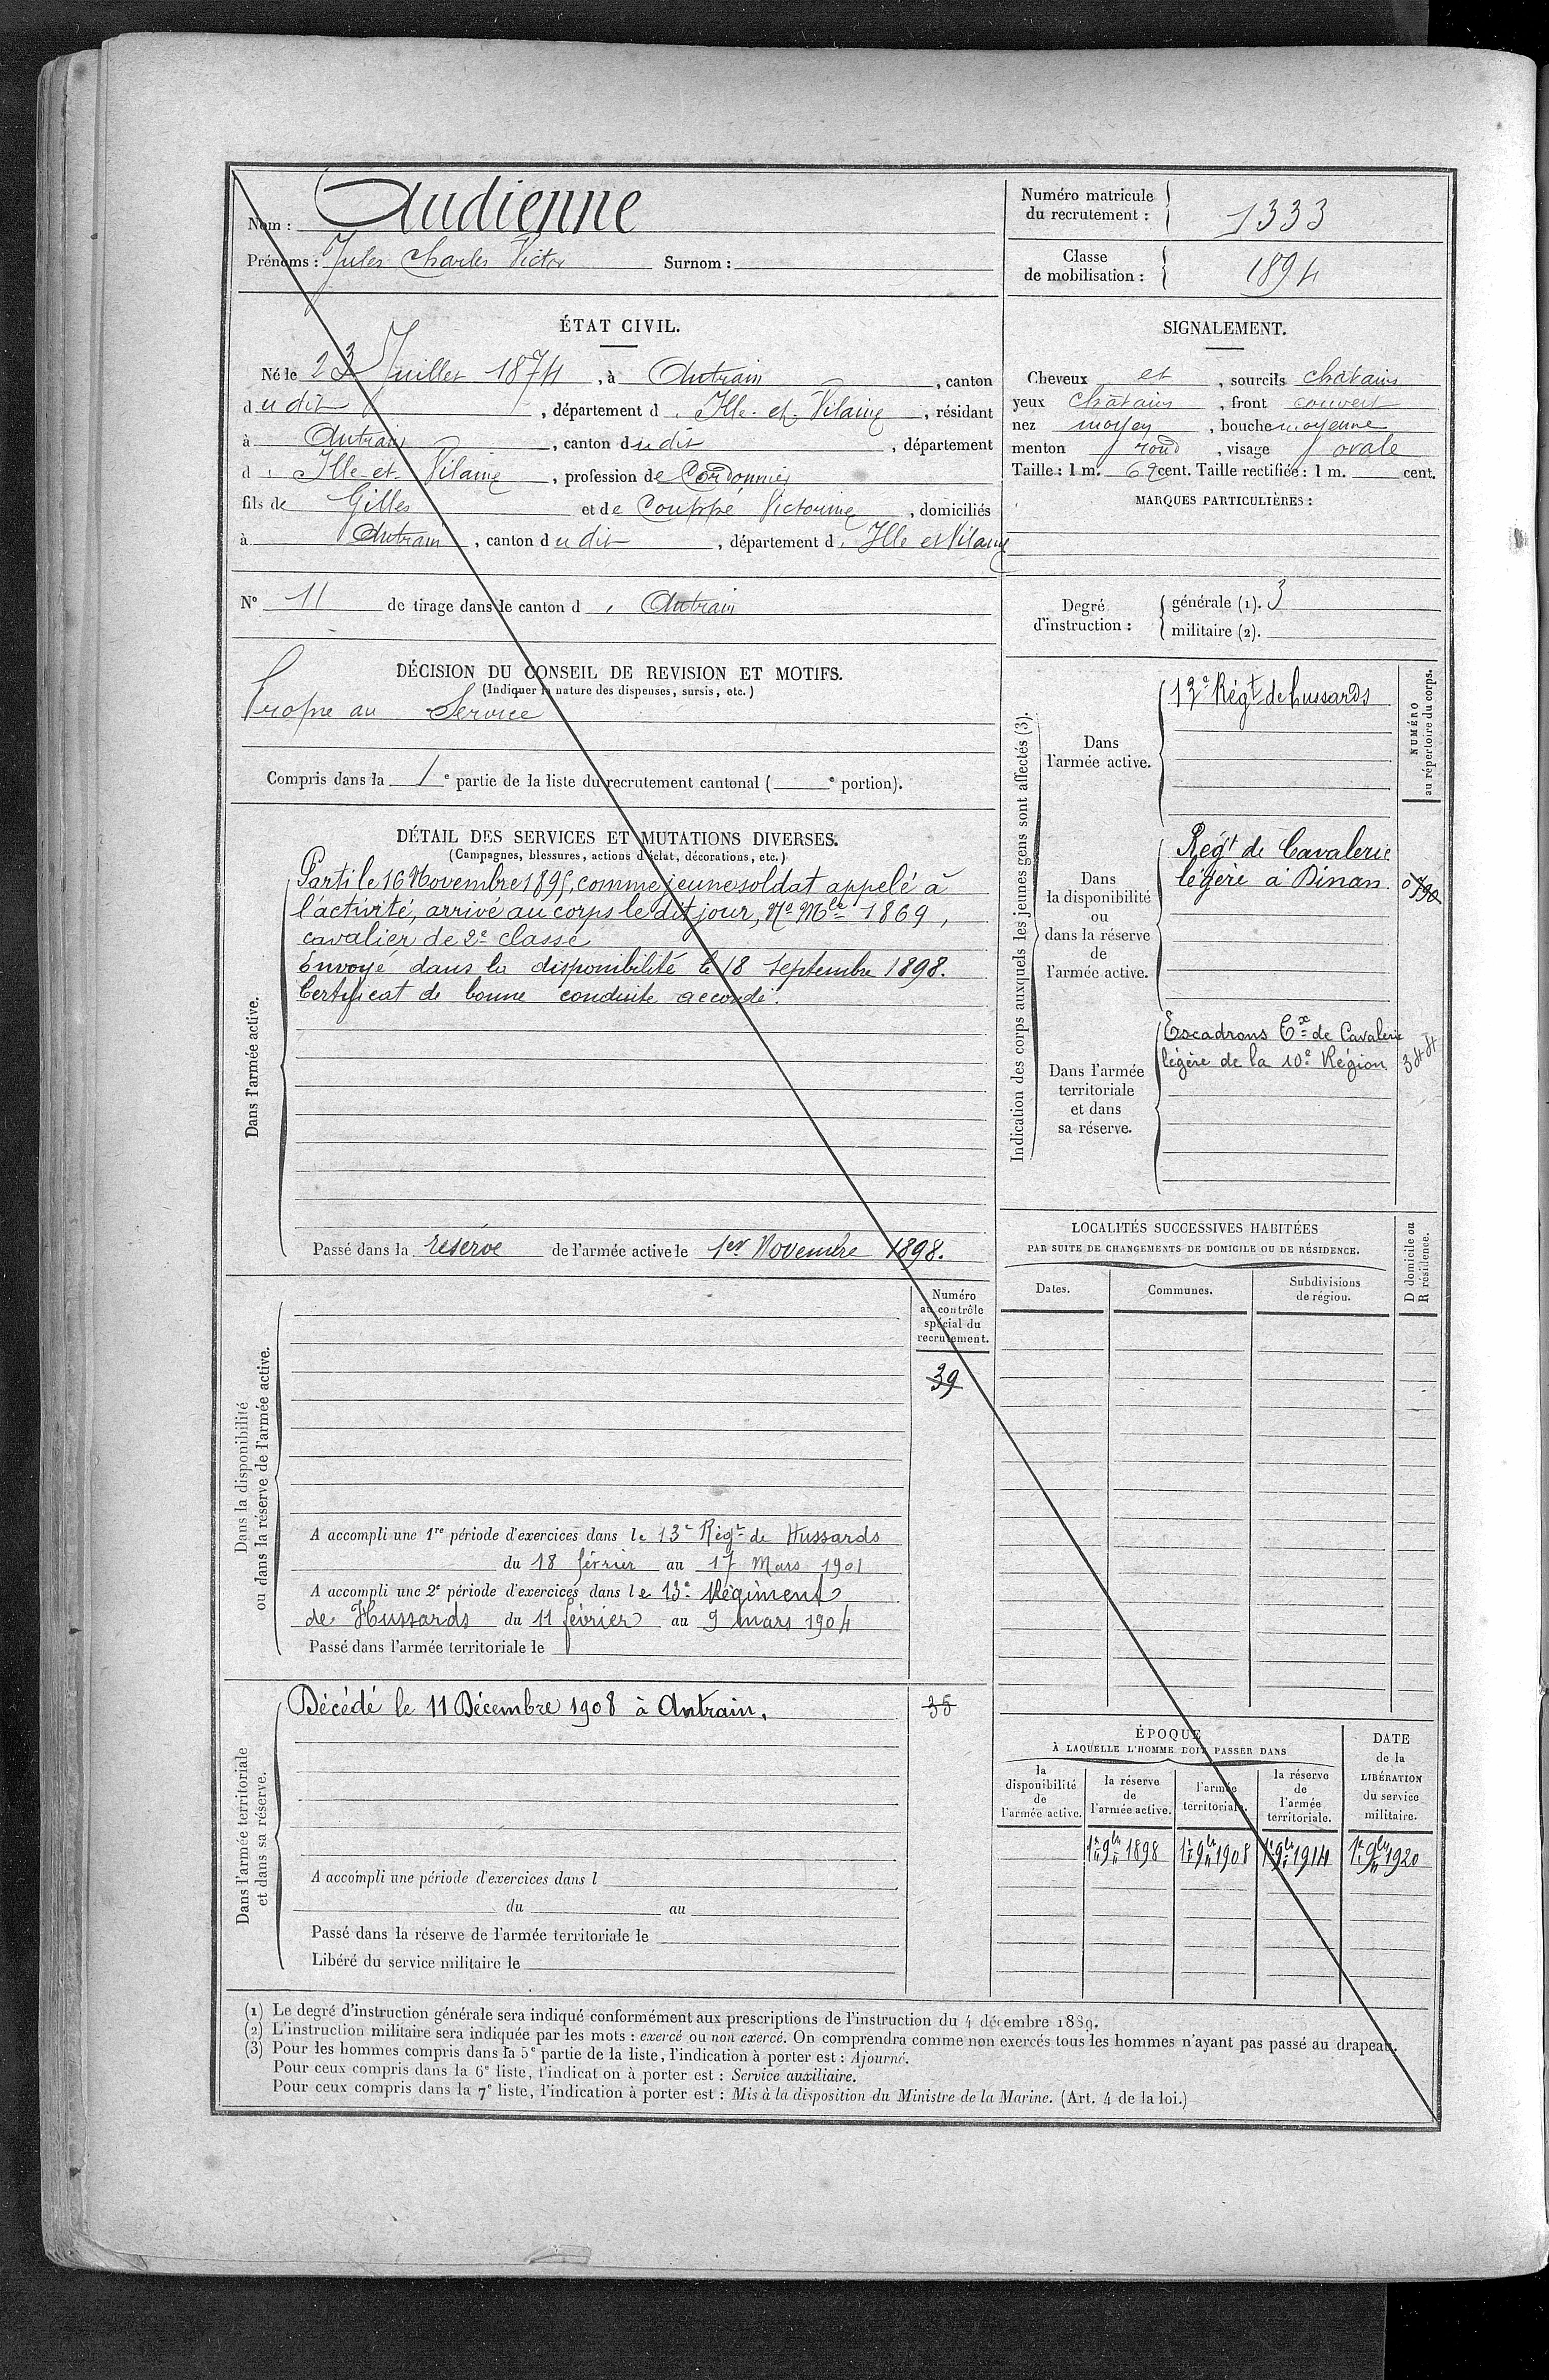 Nom : Audienne
Prénoms : Jules Charles Victor Surnom :
Numéro matricule du recrutement : 1333
Classe de mobilisation : 1894
ÉTAT CIVIL.
Né le 23 Juillet 1874, à Antrain, canton
dudit, département d'Ille-et-Vilaine, résidant
à Antrain, canton dudit, département
d'Ille-et-Vilaine, profession de Cordonnier
fils de Gilles et de Couppé Victorine, domiciliés
à Antrain, canton dudit, département d'Ille et Vilaine
N° 11 de tirage dans le canton d'Antrain
SIGNALEMENT.
Cheveux et, sourcils châtains
yeux châtains, front couvert
nez moyen, bouche moyenne
menton rond, visage ovale
Taille : 1 m. 69 cent. Taille rectifiée : 1 m. cent.
MARQUES PARTICULIÈRES :
Degré d'instruction : générale (1). 3
militaire (2).
DÉCISION DU CONSEIL DE REVISION ET MOTIFS.
(Indiquer la nature des dispenses, sursis, etc.)
Propre au Service
Compris dans la 1e partie de la liste du recrutement cantonal ( e portion).
DÉTAIL DES SERVICES ET MUTATIONS DIVERSES.
(Campagnes, blessures, actions d'éclat, décorations, etc.)
Dans l'armée active.
Parti le 16 Novembre 1895, comme jeune soldat appelé à
l'activité, arrivé au corps le dit jour, No Mle 1869,
cavalier de 2e classe
Envoyé dans la disponibilité le 18 septembre 1898.
Certificat de bonne conduite accordé.
Passé dans la réserve de l'armée active le 1er Novembre 1898.
Indication des corps auxquels les jeunes gens sont affectés (3).
NUMÉRO au répertoire du corps.
Dans l'armée active.
13e Régt de hussards
Dans la disponibilité ou dans la réserve de l'armée active.
Régt de Cavalerie
légère à Dinan
Dans l'armée territoriale et dans sa réserve.
Escadrons Tx de Cavalerie
légère de la 10e Région
344
LOCALITÉS SUCCESSIVES HABITÉES
PAR SUITE DE CHANGEMENTS DE DOMICILE OU DE RÉSIDENCE.
Dates. Communes. Subdivisions de région.
D domicile ou R résidence.
Dans la disponibilité ou dans la réserve de l'armée active.
Numéro au contrôle spécial du recrutement.
39
A accompli une 1re période d'exercices dans le 13e Régt de Hussards
du 18 février au 17 Mars 1901
A accompli une 2e période d'exercices dans le 13e Régiment
de Hussards du 11 février au 9 mars 1904
Passé dans l'armée territoriale le
Dans l'armée territoriale et dans sa réserve.
Décédé le 11 Décembre 1908 à Antrain.
35
A accompli une période d'exercices dans l
du au
Passé dans la réserve de l'armée territoriale le
Libéré du service militaire le
ÉPOQUE
À LAQUELLE L'HOMME DOIT PASSER DANS
la disponibilité de l'armée active.
la réserve de l'armée active.
l'armée territoriale.
la réserve de l'armée territoriale.
DATE de la LIBÉRATION du service militaire.
1er 9bre 1898
1er 9bre 1908
1er 9bre 1914
1er 9bre 1920
(1) Le degré d'instruction générale sera indiqué conformément aux prescriptions de l'instruction du 4 décembre 1889.
(2) L'instruction militaire sera indiquée par les mots : exercé ou non exercé. On comprendra comme non exercés tous les hommes n'ayant pas passé au drapeau.
(3) Pour les hommes compris dans la 5e partie de la liste, l'indication à porter est : Ajourné.
Pour ceux compris dans la 6e liste, l'indication à porter est : Service auxiliaire.
Pour ceux compris dans la 7e liste, l'indication à porter est : Mis à la disposition du Ministre de la Marine. (Art. 4 de la loi.)